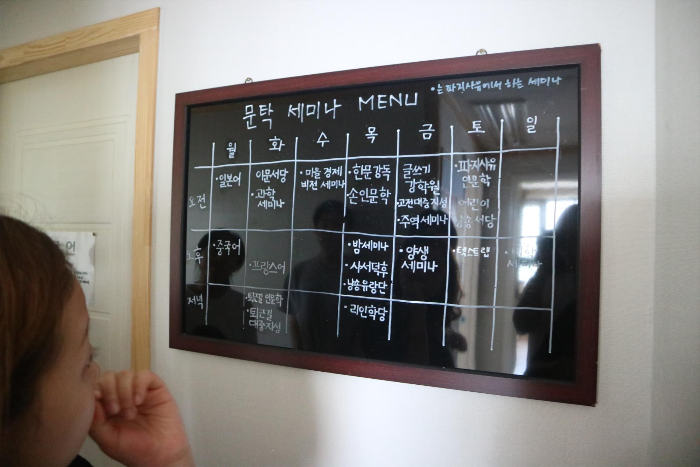 문탁 세미나 MENU
•는 파지사유에서 하는 세미나
월 화 수 목 금 토 일
오전
•일본어
이문서당
•과학
세미나
•마을 경제
비전 세미나
•한문강독
•손인문학
글쓰기
강학원
고전대중지성
•주역세미나
•파지사유
인문학
어린이
낭송서당
오후
•중국어
•프랑스어
•밤세미나
•사서덕후
낭송유랑단
•양생
세미나
•텍스트랩
세미나
저녁
•퇴근길 인문학
•퇴근길
대중지성
•리인학당
인